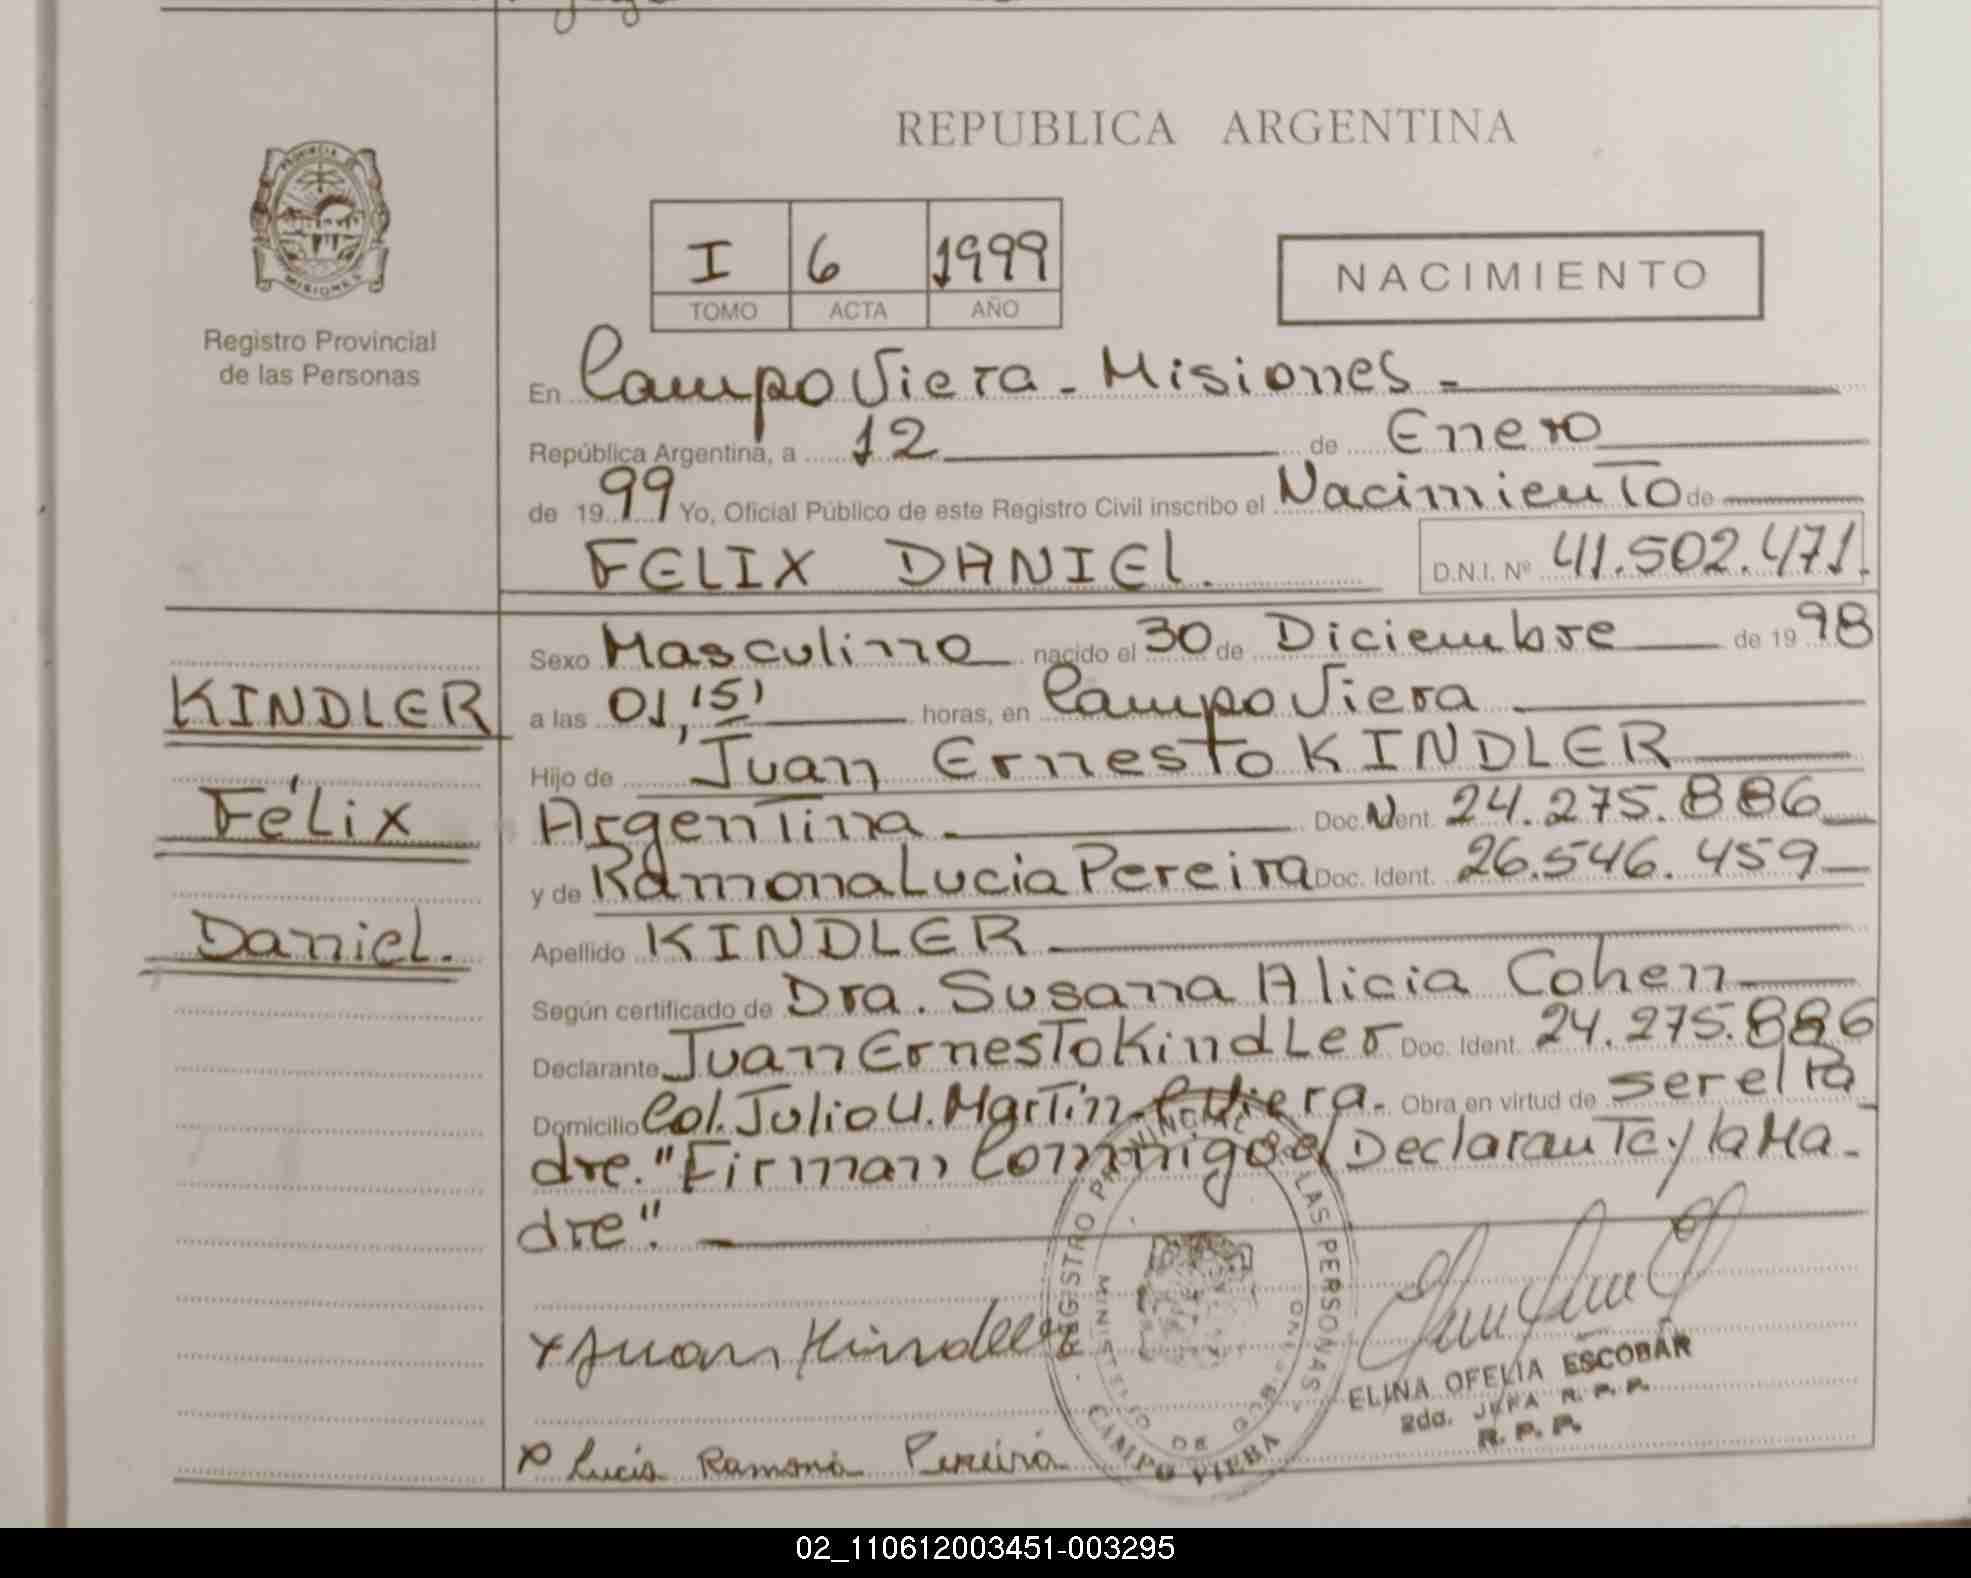 REPUBLICA ARGENTINA
PROVINCIA DE
MISIONES
Registro Provincial
de las Personas
I 6 1999
TOMO ACTA AÑO
NACIMIENTO
En Campo Viera - Misiones -
República Argentina, a 12 de Enero
de 1999 Yo, Oficial Público de este Registro Civil inscribo el Nacimiento de
FELIX DANIEL. D.N.I. Nº 41.502.471.
KINDLER
Félix
Daniel.
Sexo Masculino nacido el 30 de Diciembre de 1998
a las 01,15' horas, en Campo Viera
Hijo de Juan Ernesto KINDLER
Argentina Doc. Ident. 24.275.886
y de Ramona Lucia Pereira Doc. Ident. 26.546.459
Apellido KINDLER
Según certificado de Dra. Susana Alicia Cohen
Declarante Juan Ernesto Kindler Doc. Ident. 24.275.886
Domicilio Col. Julio U. Martin - C. Viera. Obra en virtud de ser el Pa
dre. "Firman Conmigo el Declarante y la Ma-
dre".
REGISTRO PROVINCIAL DE LAS PERSONAS
MINISTERIO DE GOBIERNO
CAMPO VIERA
x Juan Kindler
ELINA OFELIA ESCOBAR
2da. JEFA R. P. P.
R. P. P.
x Lucia Ramona Pereira
02_110612003451-003295